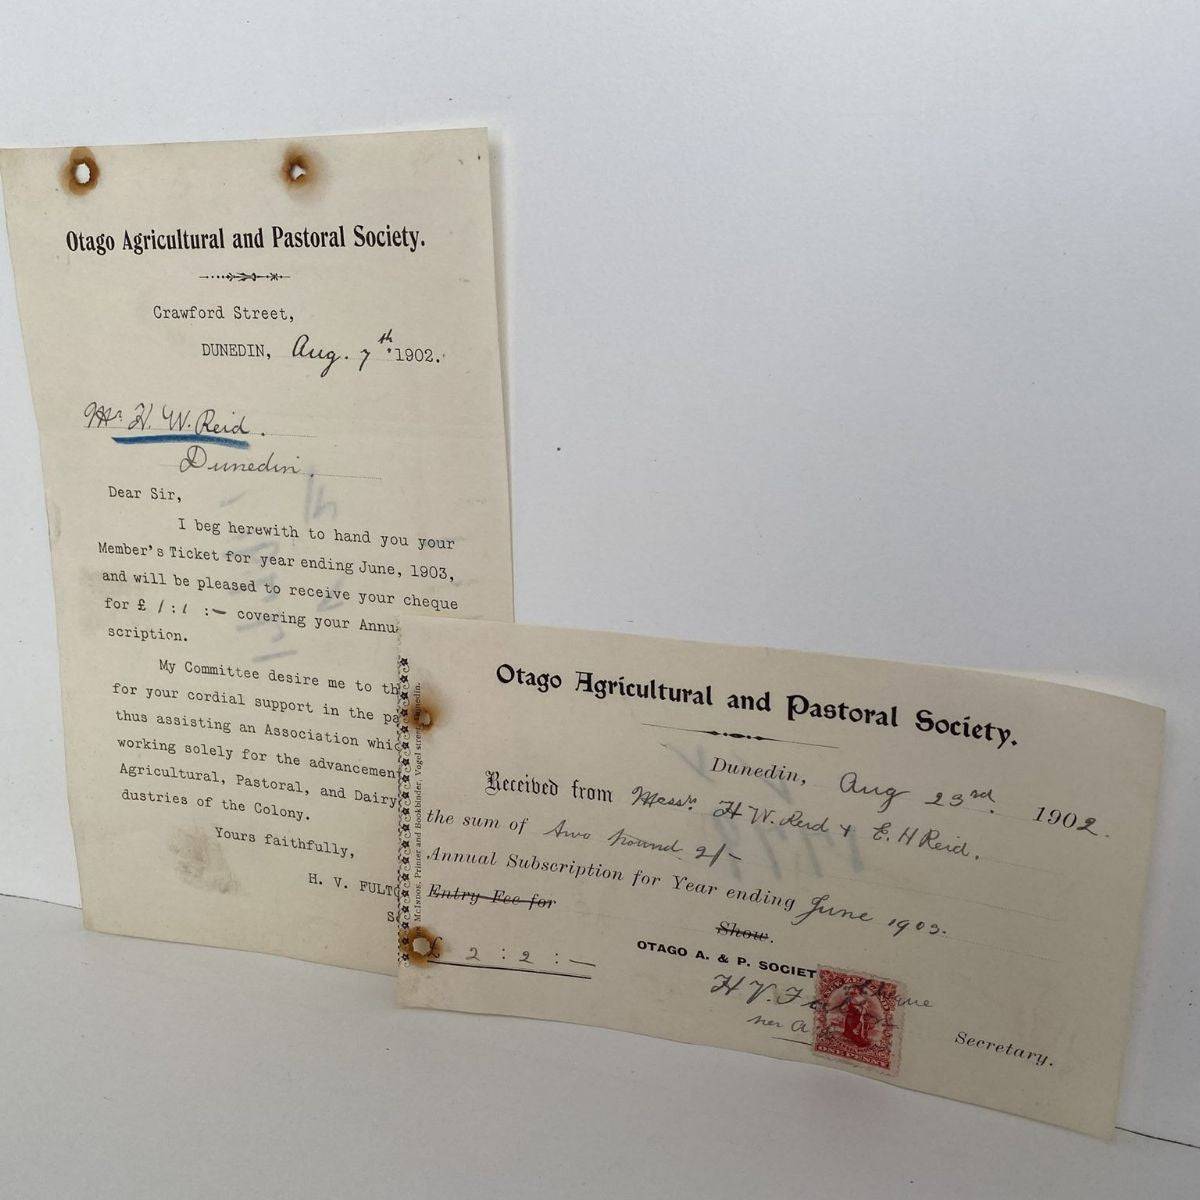 Otago Agricultural and Pastoral Society.
Crawford Street,
DUNEDIN, Aug. 7th 1902.
Mr. H. W. Reid.
Dunedin.
Dear Sir,
I beg herewith to hand you your
Member's Ticket for year ending June, 1903,
and will be pleased to receive your cheque
for £ 1:1:- covering your Annu
scription.
My Committee desire me to th
for your cordial support in the pa
thus assisting an Association whic
working solely for the advancemen
Agricultural, Pastoral, and Dairy
dustries of the Colony.
Yours faithfully,
H. V. FULTO
S
McIndoe, Printer and Bookbinder, Vogel street, Dunedin.
Otago Agricultural and Pastoral Society.
Dunedin, Aug 23rd. 1902.
Received from Messrs H W. Reid & E. H Reid.
the sum of two pound 2/-
Annual Subscription for Year ending June 1903.
Entry Fee for
Show.
£ 2 : 2 : —
OTAGO A. & P. SOCIET
H V. Fulton
per A
ONE PENNY
Secretary.